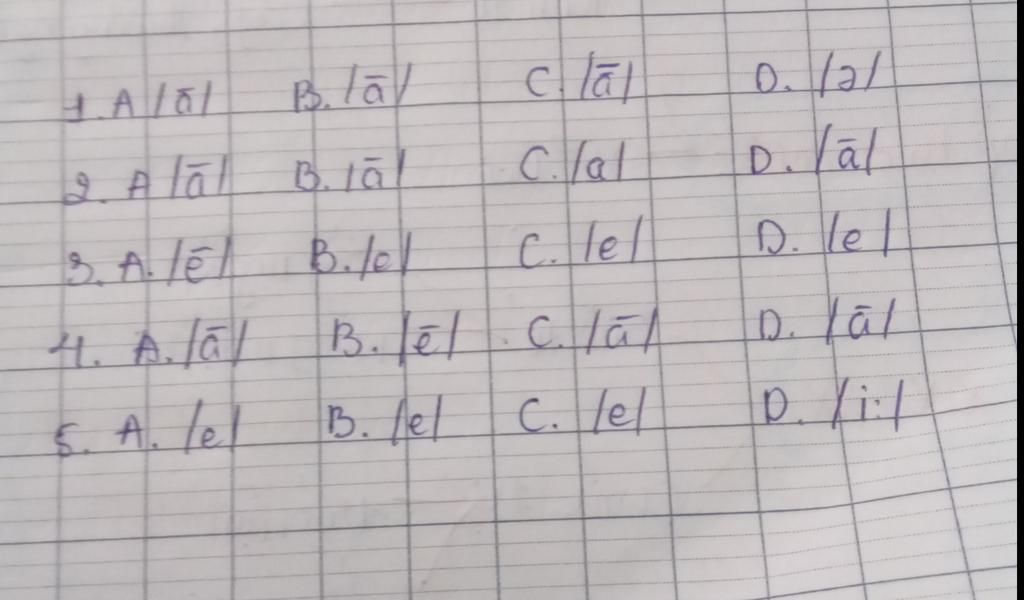 1. A /ā/ B. /ā/ C. /ā/ D. /ə/
2. A /ā/ B. /ā/ C. /a/ D. /ā/
3. A. /ē/ B. /e/ C. /e/ D. /e/
4. A. /ā/ B. /ē/ C. /ā/ D. /ā/
5. A. /e/ B. /e/ C. /e/ D. /i:/